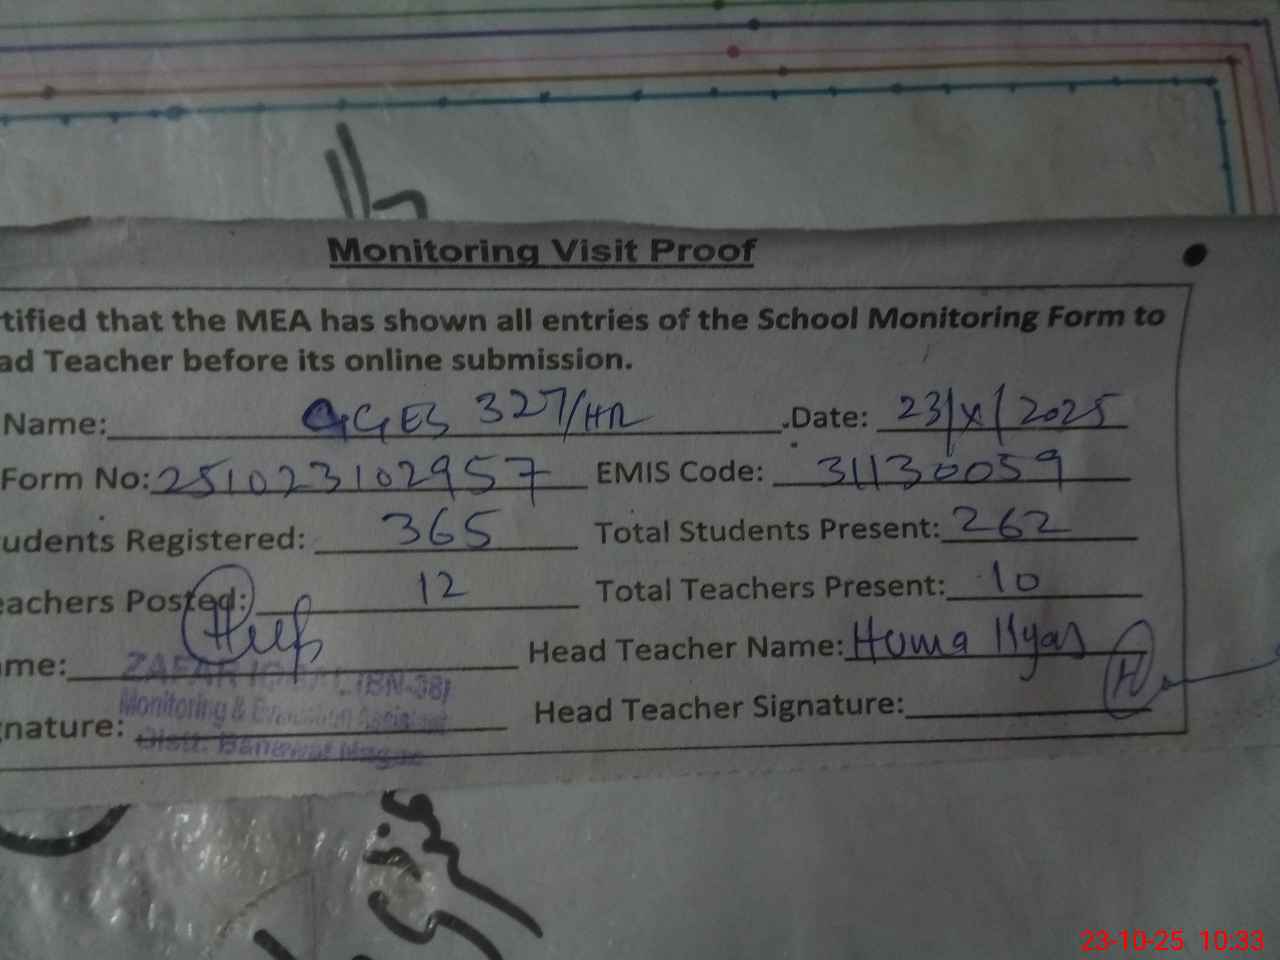 Monitoring Visit Proof
tified that the MEA has shown all entries of the School Monitoring Form to
ad Teacher before its online submission.
Name: GGES 327/HR .Date: 23/X/2025
Form No: 251023102957 EMIS Code: 31130059
udents Registered: 365 Total Students Present: 262
eachers Posted: 12 Total Teachers Present: 10
me: Head Teacher Name: Huma Ilyas
ZAFAR IQBAL (BN-38)
Monitoring & Evaluation Assistant
gnature: Head Teacher Signature: H
Distt. Bahawal Nagar
23-10-25 10:33